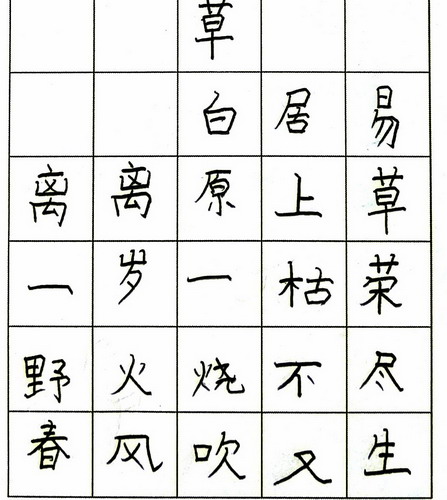 草
白居易
离离原上草
一岁一枯荣
野火烧不尽
春风吹又生